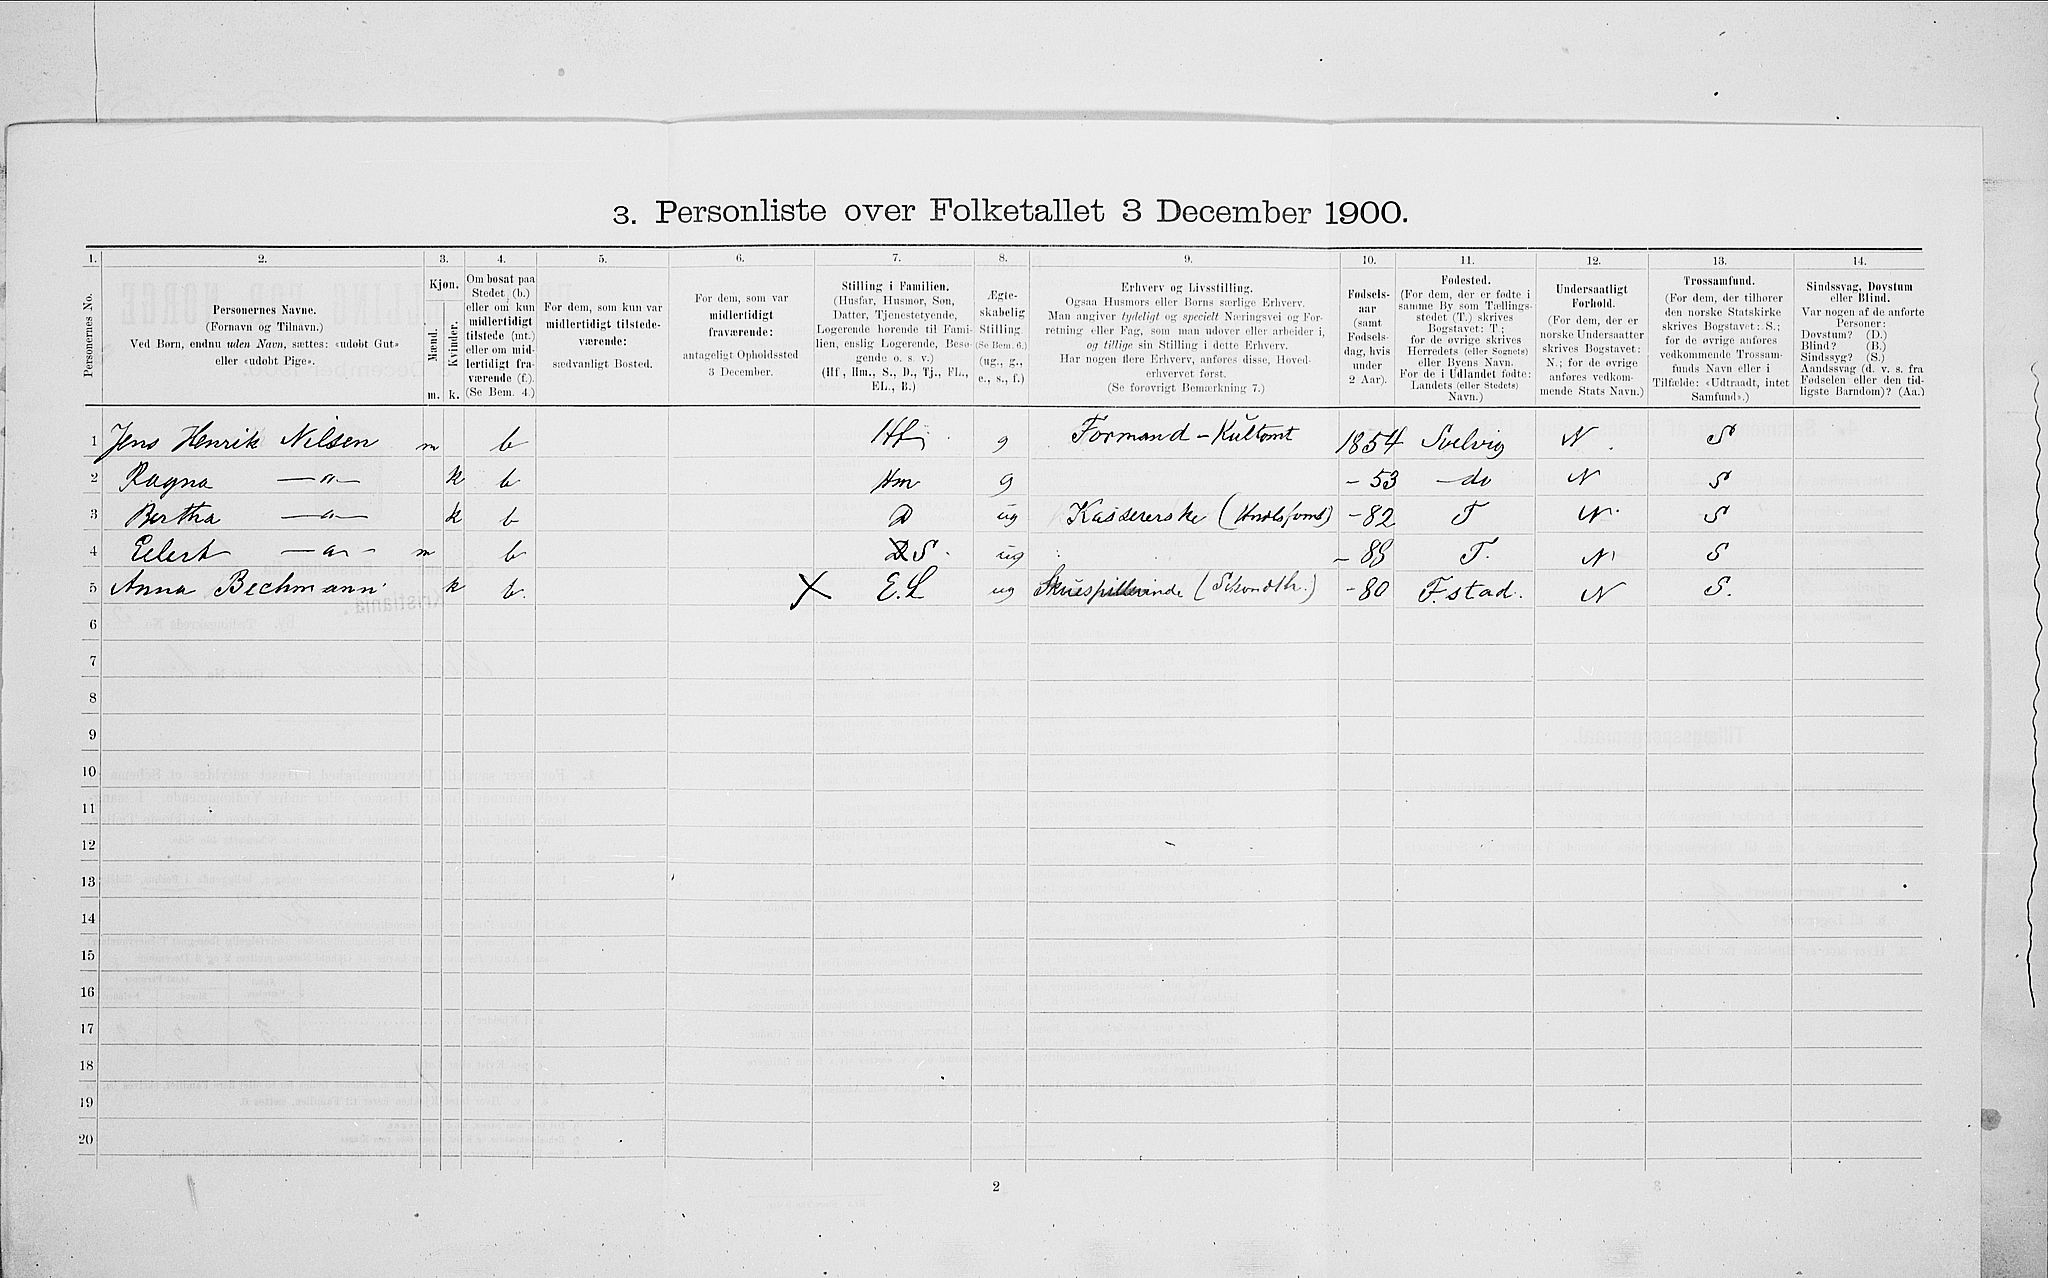 3. Personliste over Folketallet 3 December 1900.
1. 2. 3. 4. 5. 6. 7. 8. 9. 10. 11. 12. 13. 14.
Personernes No.
Personernes Navne.
(Fornavn og Tilnavn.)
Ved Børn, endnu uden Navn, sættes: «udøbt Gut»
eller «udøbt Pige».
Kjøn.
Mænd.
Kvinder.
m. k.
Om bosat paa
Stedet (b.)
eller om kun
midlertidigt
tilstede (mt.)
eller om mid-
lertidigt fra-
værende (f.)
(Se Bem. 4.)
For dem, som kun var
midlertidigt tilstede-
værende:
sædvanligt Bosted.
For dem, som var
midlertidigt
fraværende:
antageligt Opholdssted
3 December.
Stilling i Familien.
(Husfar, Husmor, Søn,
Datter, Tjenestetyende,
Logerende hørende til Fami-
lien, enslig Logerende, Besø-
gende o. s. v.)
(Hf., Hm., S., D., Tj., FL.,
EL., B.)
Ægte-
skabelig
Stilling.
(Se Bem. 6.)
(ug., g.,
e., s., f.)
Erhverv og Livsstilling.
Ogsaa Husmors eller Børns særlige Erhverv.
Man angiver tydeligt og specielt Næringsvei og For-
retning eller Fag, som man udøver eller arbeider i,
og tillige sin Stilling i dette Erhverv.
Har nogen flere Erhverv, anføres disse, Hoved-
erhvervet først.
(Se forøvrigt Bemærkning 7.)
Fødsels-
aar
(samt
Fødsels-
dag, hvis
under
2 Aar).
Fødested.
(For dem, der er fødte i
samme By som Tællings-
stedet (T.) skrives
Bogstavet: T;
for de øvrige skrives
Herredets (eller Sognets)
eller Byens Navn.
For de i Udlandet fødte:
Landets (eller Stedets)
Navn.)
Undersaatligt
Forhold.
(For dem, der er
norske Undersaatter
skrives Bogstavet:
N.; for de øvrige
anføres vedkom-
mende Stats Navn.)
Trossamfund.
(For dem, der tilhører
den norske Statskirke
skrives Bogstavet: S.;
for de øvrige anføres
vedkommende Trossam-
funds Navn eller i
Tilfælde: «Udtraadt, intet
Samfund».)
Sindssvag, Døvstum
eller Blind.
Var nogen af de anførte
Personer:
Døvstum? (D.)
Blind? (B.)
Sindssyg? (S.)
Aandssvag (d. v. s. fra
Fødselen eller den tid-
ligste Barndom)? (Aa.)
1 Jens Henrik Nilsen m b Hf g Formand - Kultomt 1854 Svelvig N. S
2 Ragna —"— k b Hm g - 53 - do N S
3 Bertha —"— k b D ug Kassererske ( - 82 T N S
4 Eilert —"— m b D S. ug - T. N S
5 Anna Bechmann k b. X E. L ug Skuespillerinde (Sekondth.) - 80 F.stad. N S.
6
7
8
9
10
11
12
13
14
15
16
17
18
19
20
2